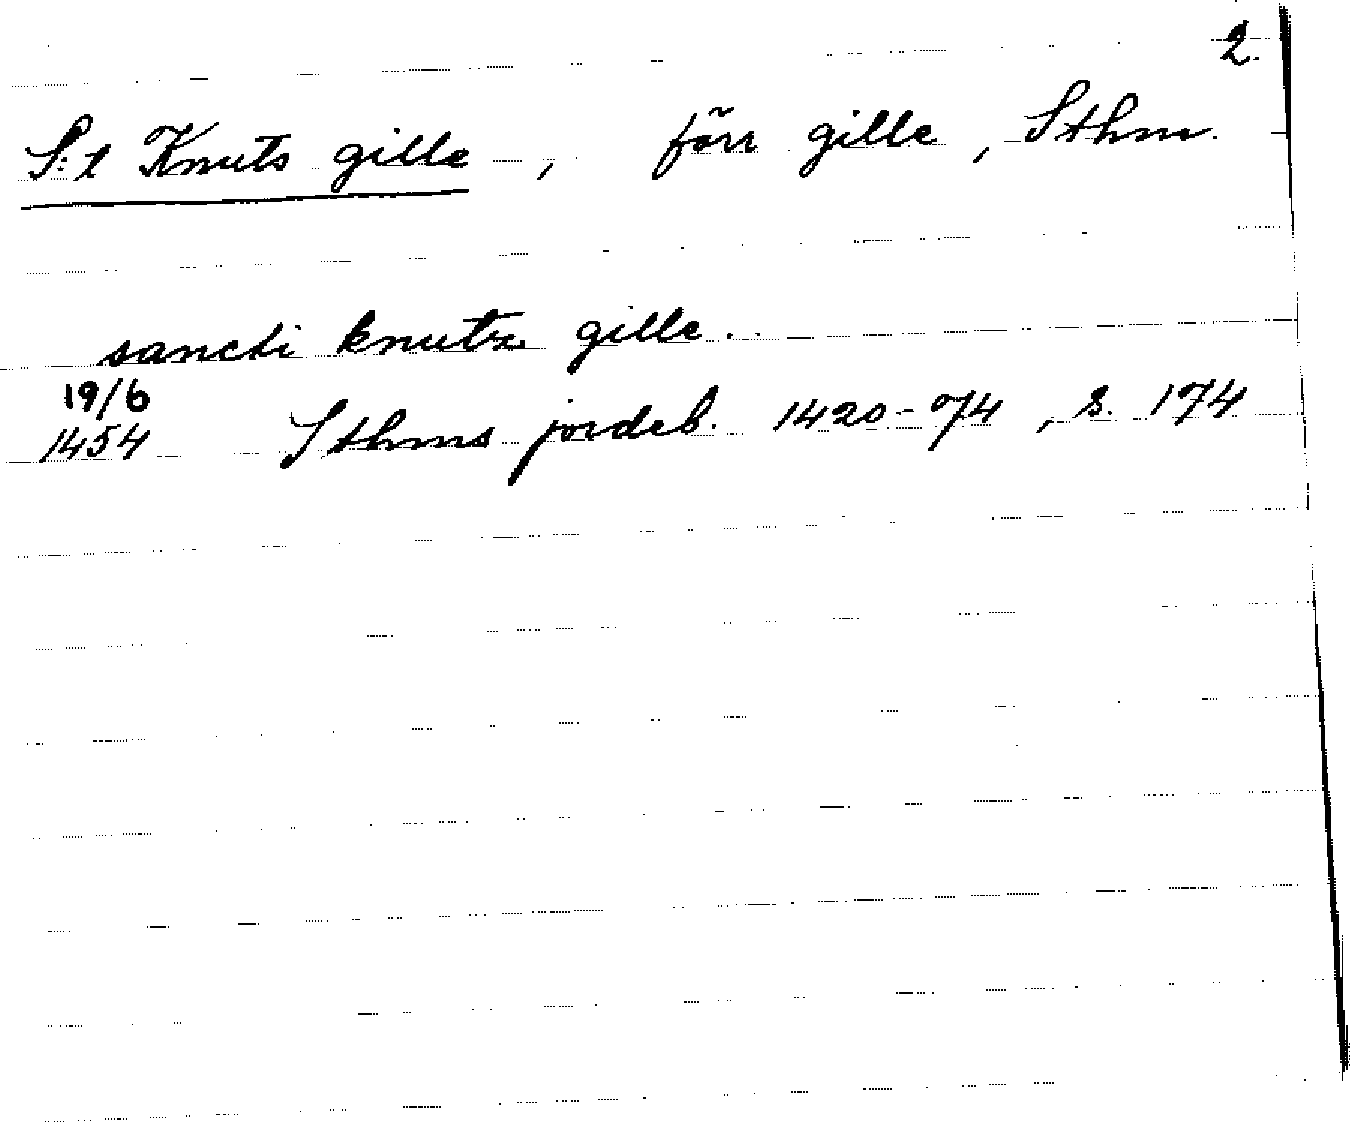 2.
S:t Knuts gille, förr gille, Sthm.
sancti knutz gille.
19/6
1454 Sthms jordeb. 1420-74, s. 174